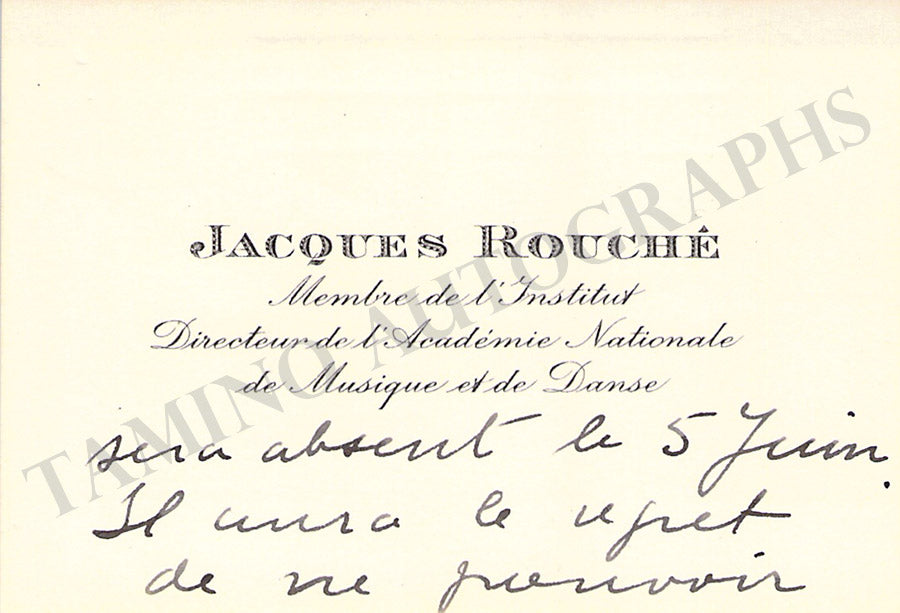 JACQUES ROUCHÉ
Membre de l'Institut
Directeur de l'Académie Nationale
de Musique et de Danse
sera absent le 5 Juin.
Il aura le regret
de ne pouvoir
TAMINO AUTOGRAPHS